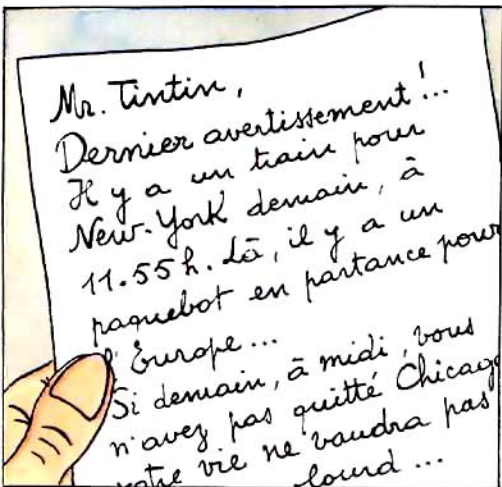 Mr. Tintin,
Dernier avertissement!..
Il y a un train pour
New-York demain, à
11.55 h. Là, il y a un
paquebot en partance pour
l'Europe...
Si demain, à midi, vous
n'avez pas quitté Chicago
votre vie ne vaudra pas
lourd...